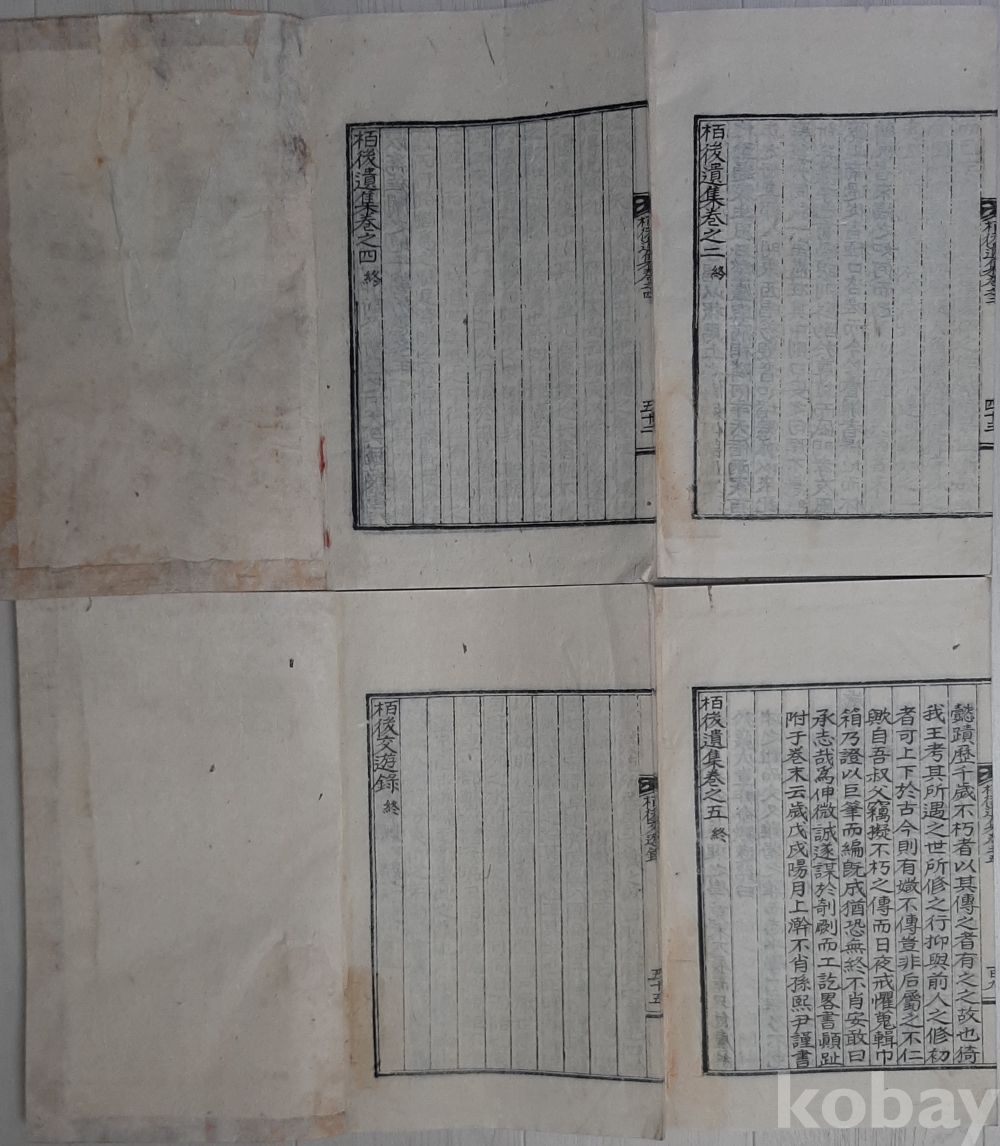 栢後遺集卷之二 終
四十三
栢後遺集卷之四 終
五十二
懿蹟歷千歲不朽者以其傳之者有之之故也猗
我王考其所遇之世所修之行抑與前人之修初
者可上下於古今則有媺不傳豈非后屬之不仁
歟自吾叔父竊擬不朽之傳而日夜戒懼蒐輯巾
箱乃證以巨筆而編旣成猶恐無終不肖安敢曰
承志哉爲伸微誠遂謀於剞劂而工訖畧書顚趾
附于卷末云歲戊戌陽月上澣不肖孫熙尹謹書
栢後遺集卷之五 終
栢後交遊錄 終
栢後交遊錄
五十五
kobay